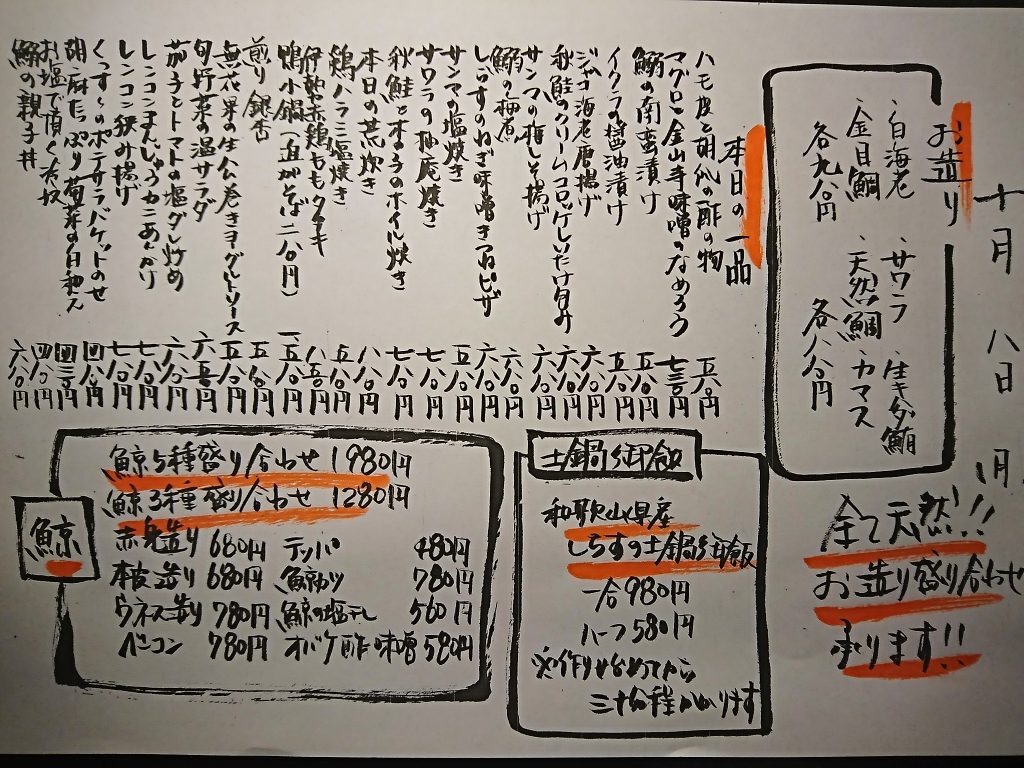 十月八日(月)
お造り
・白海老 ・サワラ ・生き鮪
・金目鯛 ・天然鯛 ・カマス
各九八〇円 各八八〇円
全て天然!!
お造り盛り合わせ
承ります!!
本日の一品
ハモ皮と胡瓜の酢の物 五八〇円
マグロと金山寺味噌のなめろう 七三〇円
鰯の南蛮漬け 五八〇円
イクラの醤油漬け 五八〇円
ジャコ海老唐揚げ 六八〇円
秋鮭のクリームコロッケしいたけ包み 六八〇円
サンマの梅しそ揚げ 六八〇円
鰯の柚庵 六八〇円
しらすのねぎ味噌きつねピザ 六八〇円
サンマの塩焼き 五八〇円
サワラの柚庵焼き 七八〇円
秋鮭ときのこのホイル焼き 七八〇円
本日の荒炊き 八八〇円
鶏ハラミ塩焼き 五八〇円
伊勢赤鶏ももタタキ 八五〇円
鴨小鍋(追がそば二八〇円) 一、五八〇円
煎り銀杏 五八〇円
無花果の生ハム巻きヨーグルトソース 五八〇円
旬野菜の温サラダ 六五〇円
茄子とトマトの塩ダレ炒め 六八〇円
レンコンまんじゅうカニあんかけ 七八〇円
レンコン挟み揚げ 七八〇円
くっす〜のポテサラバゲットのせ 四八〇円
胡麻たっぷり菊菜の白和え 四三〇円
お塩で頂く冷奴 四八〇円
鰯の親子丼 六八〇円
土鍋御飯
和歌山県産
しらすの土鍋御飯
一合980円
ハーフ580円
※作り始めてから
三十分程かかります
鯨
鯨5種盛り合わせ 1980円
鯨3種盛り合わせ 1280円
赤身造り 680円 テッパ 480円
本皮造り 680円 鯨カツ 780円
ウネス造り 780円 鯨の塩干し 560円
ベーコン 780円 オバケ酢味噌 580円